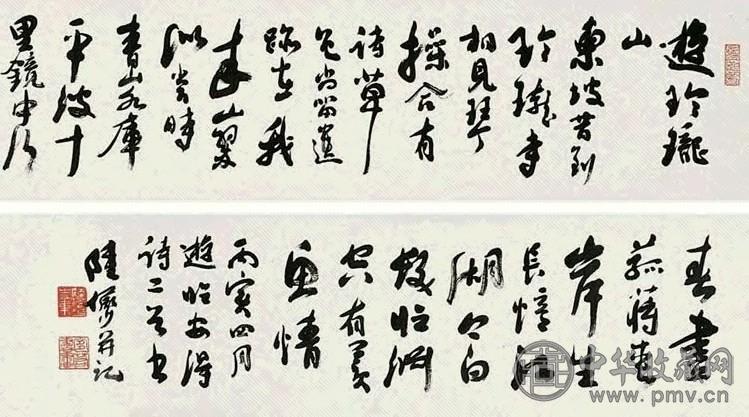 遊玲瓏
山
東坡昔到
玲瓏寺
相見琴
操合有
詩草
色尚留遺
跡在我
來山翠
似當時
青山水庫
平波十
里鏡中行
春盡
菰蒋
岸生
長憶
湖白
臨淵
只有羡
魚情
丙寅四月
遊臨安得
詩二首書
陸儼并記
中华收藏网
www.pmv.cn